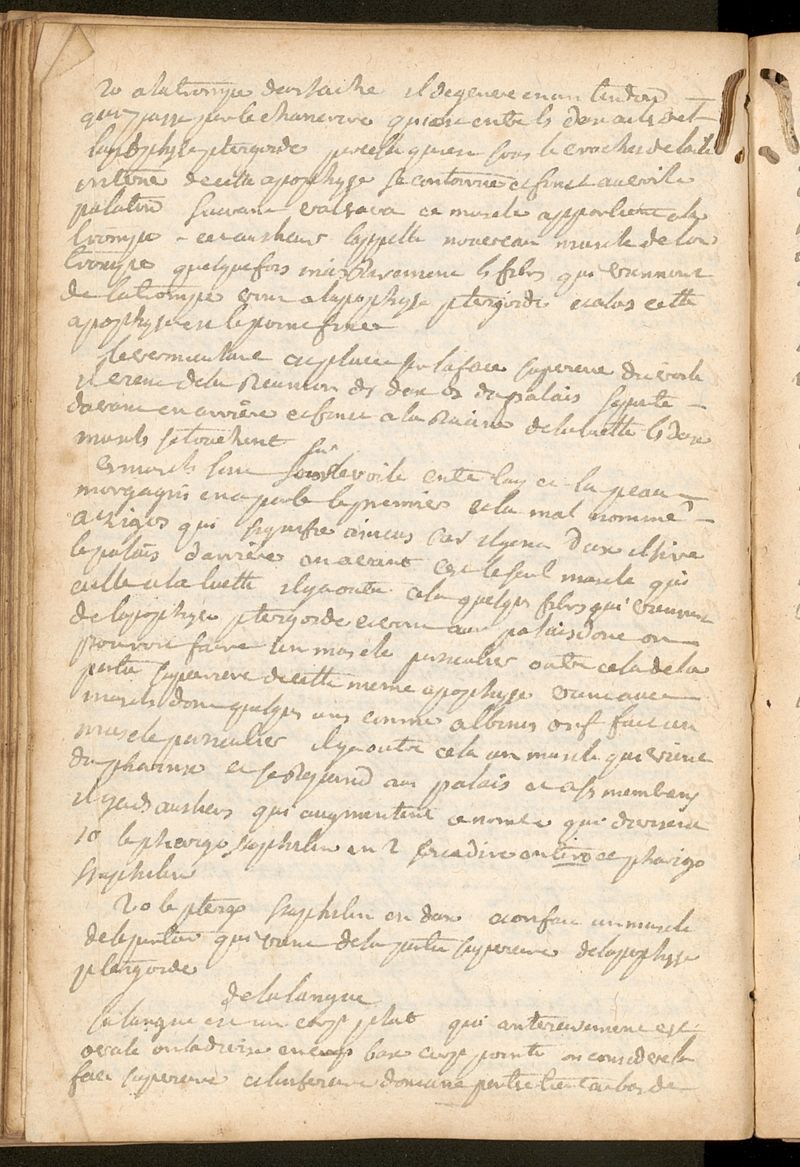 2o a la trompe deustache il degenere en un tendon
qui passe par le chanevure qui est entre ls deux ailes det
lapophyse pterigoide par la qui est sous le crochet de laile
interne de cette apophyse se contourne et finit au voile
palatin suivant valsava ce muscle appartient a la
trompe cet autheur lappelle nouveau muscle de la
trompe quelquefois les fibres qui viennent
de la trompe vont a lapophyse pterigoide et alos cette
apophyse est le point fixe
le vermiculaire est place sur la face superieure du voile
il vient de la Reunion ds deux os du palais se porte
davant en arriere et finit a la Racine de la luette ls deux
muscls se touchent
ces muscls sont sur le voile entre luy et la peau
morgagni en a parlé le premier et la mal nommé
azigos qui signifie car il y en a deux il tire
le palais darriere en avant cest le seul muscle qui
aille a la luette il y a outre cela quelqs fibrs qui viennent
de lapophyse pterigoide et vont au palais dont on
pourroit faire un muscle particulier outre cela de la
partie superieure de cette meme apophyse
muscls dont quelqs uns comme albinus ont fait un
muscle particulier il y a outre cela un muscle qui vient
du pharinx et se Repand au palais et a ss membrans
il y a ds autheurs qui augmentent ce nombre qui divisent
1o le pharigo staphilin en 2 cest a dire en tiro et pharigo
staphilin
2o le pterigo staphilin en deux a on fait un muscle
de la partie qui vient de la partie superieure de lapophyse
pterigoide
de la langue
la langue est un corps plat qui anterieurement est
ovale on la divise en corps base et pointe on considere la
face superieure et linferieure